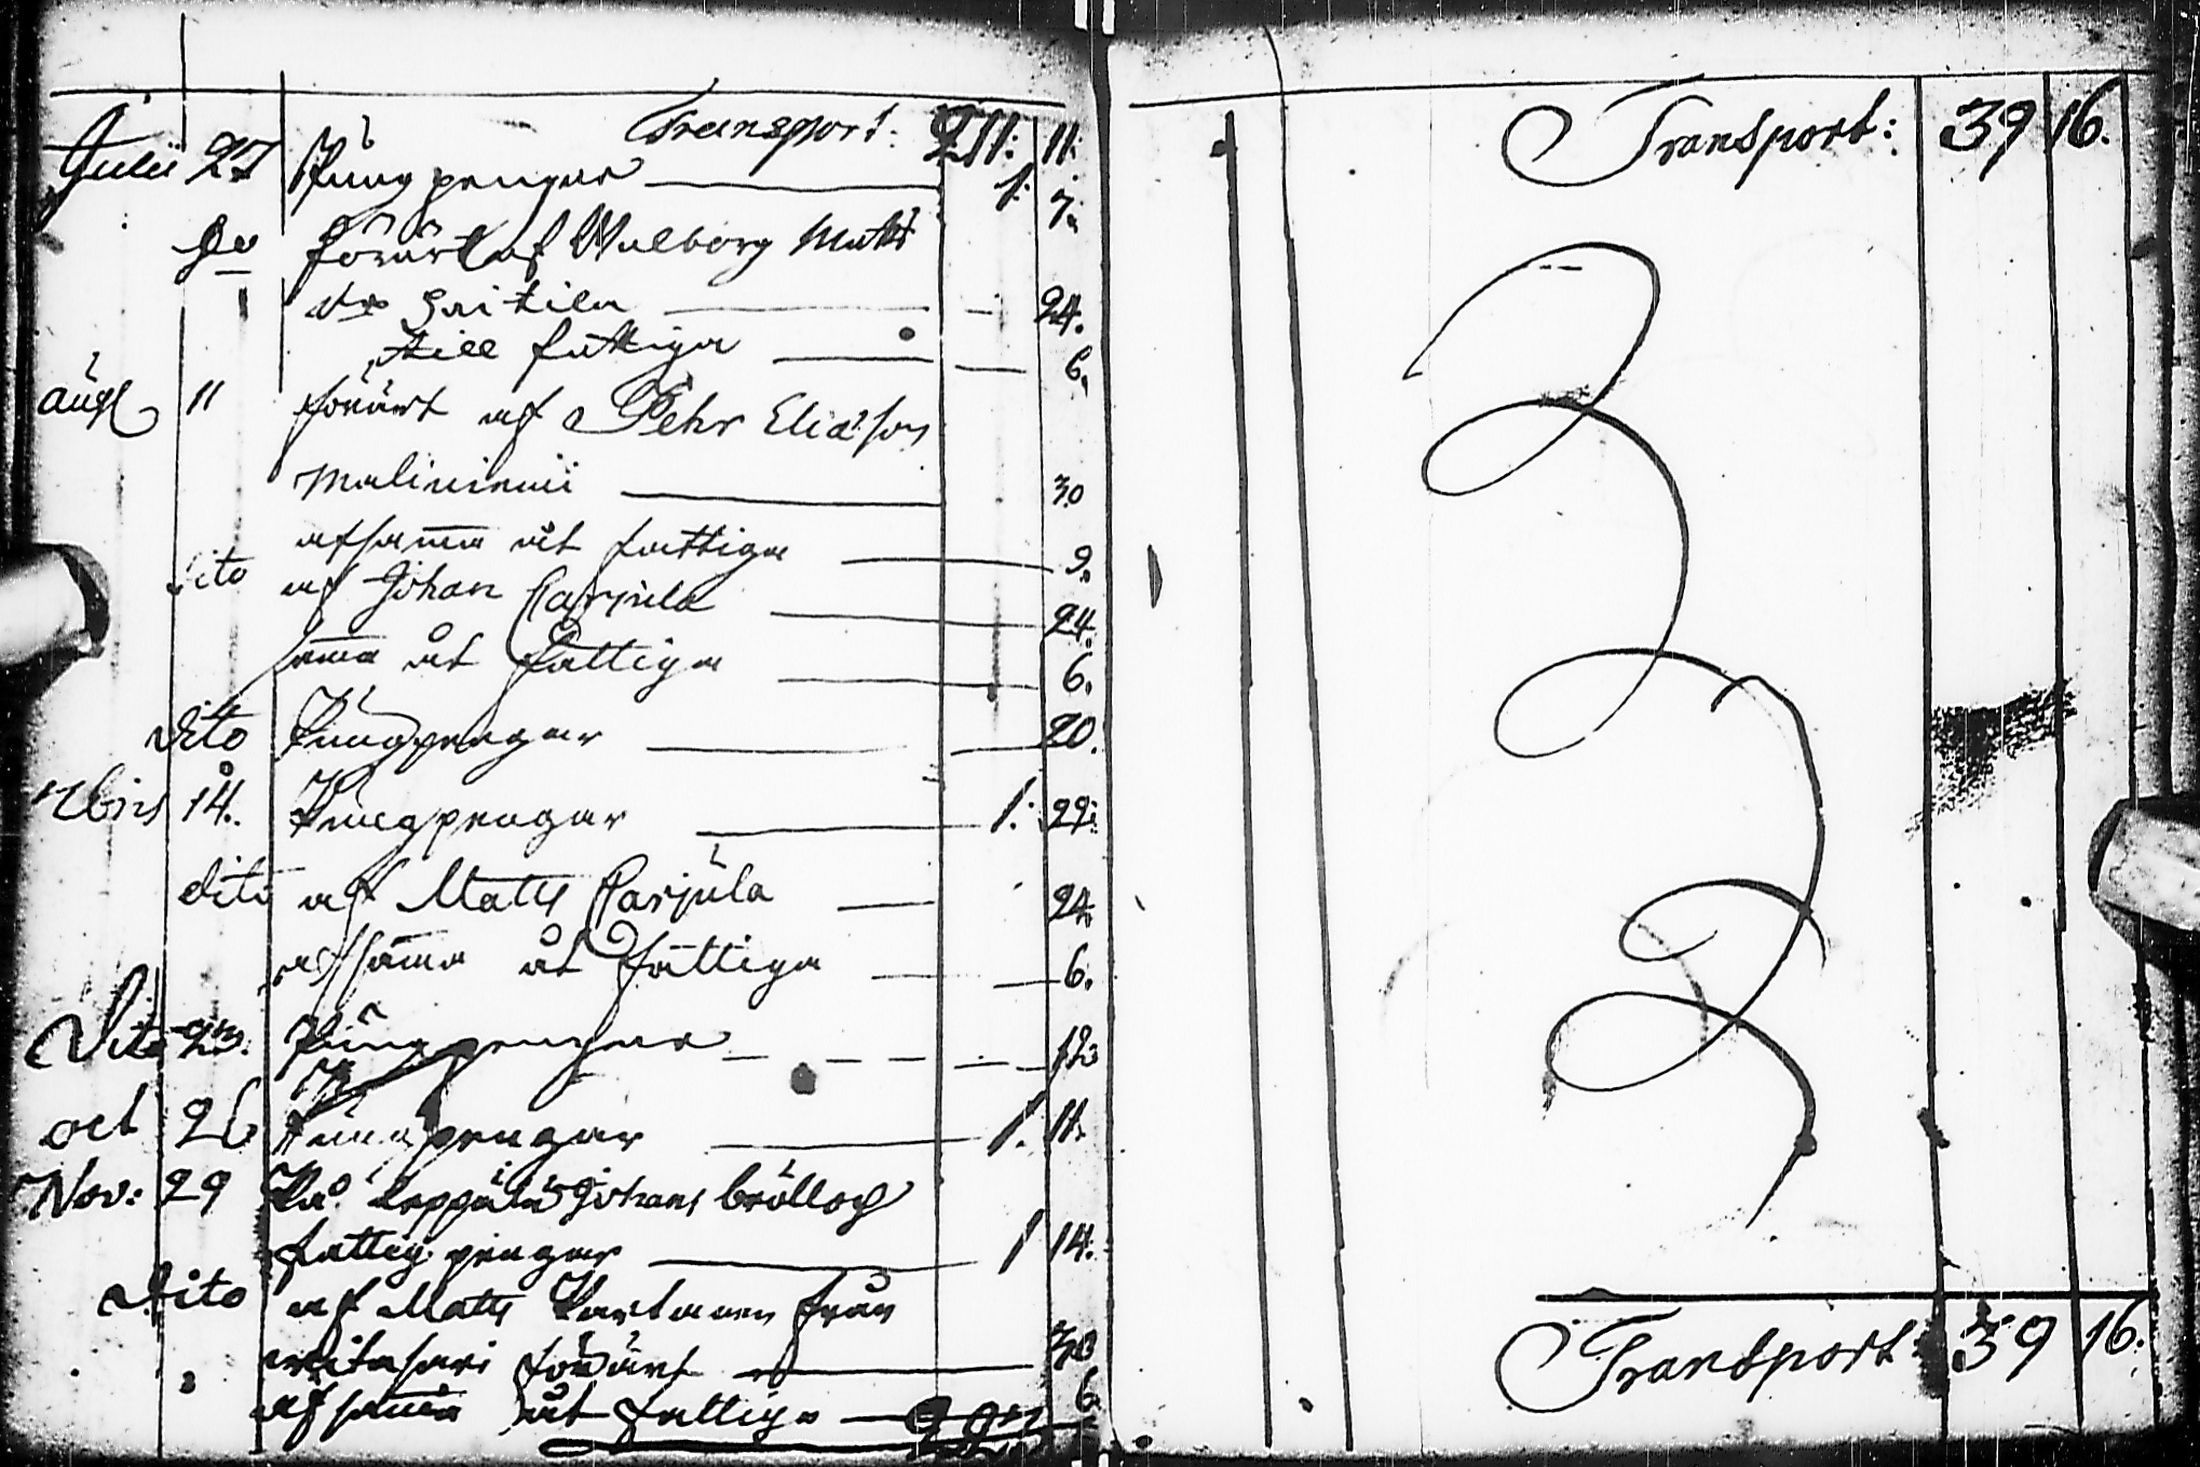 Transport: 211: 11:
Julii 27 Pungpengar 1: 7.
do förärt af Walborg Matts
dr Saitila 24.
till fattiga 6.
aug 11 förärt af Pehr Eliæson
Maliniemi 30
af samma åt fattiga 9.
dito af Johan Karjula 24.
samma åt fattiga 6.
dito Pungpengar 20.
7bris 14. Pungpengar 1: 22:
dito af Matts Karjula 24.
af samma åt fattiga 6.
Dito 23. Pungpengar 12
oct 26 Pungpengar 1. 11.
Nov: 29 På Leppälä Johans bröllop
fattig pengar 1 14:
dito af Matts Partanen från
förärt 30
af samma åt fattiga 6
Transport: 39 16.
Transport 39 16: